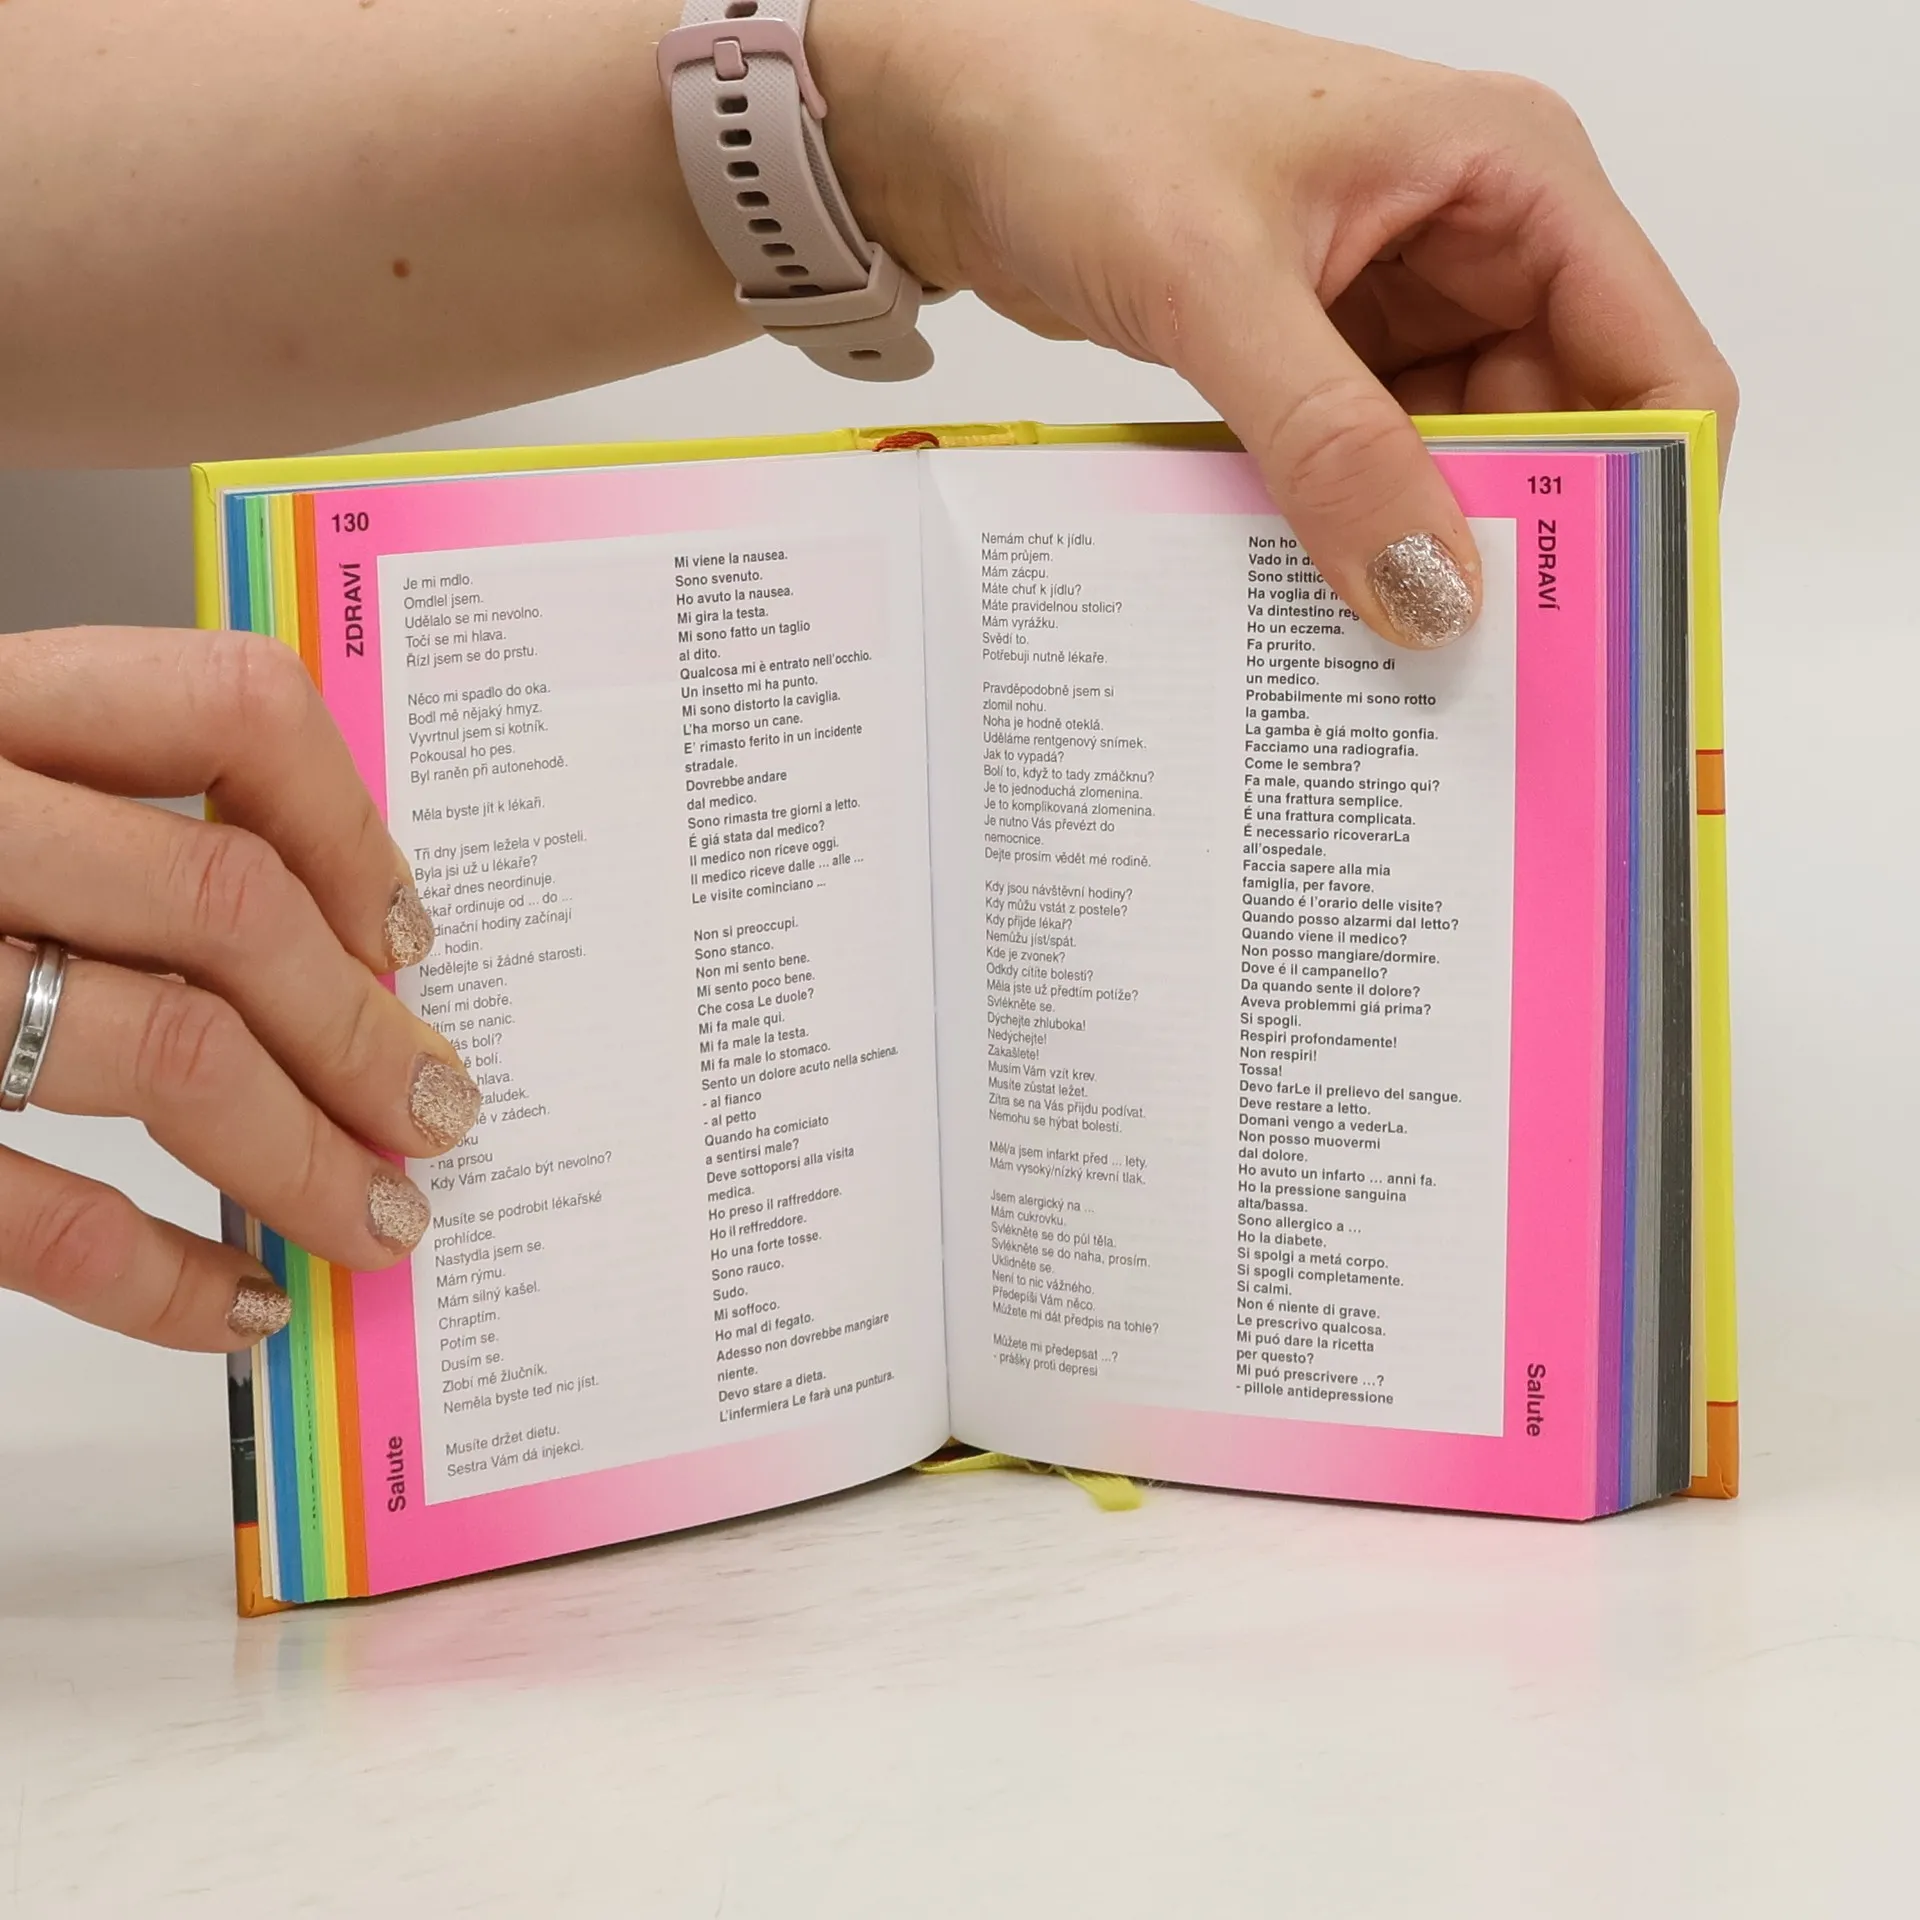 130
ZDRAVÍ
Je mi mdlo.
Omdlel jsem.
Udělalo se mi nevolno.
Točí se mi hlava.
Řízl jsem se do prstu.
Něco mi spadlo do oka.
Bodl mě nějaký hmyz.
Vyvrtnul jsem si kotník.
Pokousal ho pes.
Byl raněn při autonehodě.
Měla byste jít k lékaři.
Tři dny jsem ležela v posteli.
Byla jsi už u lékaře?
Lékař dnes neordinuje.
ordinuje od ... do ...
hodiny začínají
... hodin.
Nedělejte si žádné starosti.
Jsem unaven.
Není mi dobře.
se nanic.
bolí?
bolí.
hlava.
v zádech.
- na prsou
Kdy Vám začalo být nevolno?
Musíte se podrobit lékařské
prohlídce.
Nastydla jsem se.
Mám rýmu.
Mám silný kašel.
Chraptím.
Potím se.
Dusím se.
Zlobí mě žlučník.
Neměla byste teď nic jíst.
Musíte držet dietu.
Sestra Vám dá injekci.
Mi viene la nausea.
Sono svenuto.
Ho avuto la nausea.
Mi gira la testa.
Mi sono fatto un taglio
al dito.
Qualcosa mi è entrato nell'occhio.
Un insetto mi ha punto.
Mi sono distorto la caviglia.
L'ha morso un cane.
E' rimasto ferito in un incidente
stradale.
Dovrebbe andare
dal medico.
Sono rimasta tre giorni a letto.
É giá stata dal medico?
Il medico non riceve oggi.
Il medico riceve dalle ... alle ...
Le visite cominciano ...
Non si preoccupi.
Sono stanco.
Non mi sento bene.
Mi sento poco bene.
Che cosa Le duole?
Mi fa male qui.
Mi fa male la testa.
Mi fa male lo stomaco.
Sento un dolore acuto nella schiena.
- al fianco
- al petto
Quando ha comiciato
a sentirsi male?
Deve sottoporsi alla visita
medica.
Ho preso il raffreddore.
Ho il reffreddore.
Ho una forte tosse.
Sono rauco.
Sudo.
Mi soffoco.
Ho mal di fegato.
Adesso non dovrebbe mangiare
niente.
Devo stare a dieta.
L'infermiera Le farà una puntura.
Salute
131
ZDRAVÍ
Nemám chuť k jídlu.
Mám průjem.
Mám zácpu.
Máte chuť k jídlu?
Máte pravidelnou stolici?
Mám vyrážku.
Svědí to.
Potřebuji nutně lékaře.
Pravděpodobně jsem si
zlomil nohu.
Noha je hodně oteklá.
Uděláme rentgenový snímek.
Jak to vypadá?
Bolí to, když to tady zmáčknu?
Je to jednoduchá zlomenina.
Je to komplikovaná zlomenina.
Je nutno Vás převézt do
nemocnice.
Dejte prosím vědět mé rodině.
Kdy jsou návštěvní hodiny?
Kdy můžu vstát z postele?
Kdy přijde lékař?
Nemůžu jíst/spát.
Kde je zvonek?
Odkdy cítíte bolesti?
Měla jste už předtím potíže?
Svlékněte se.
Dýchejte zhluboka!
Nedýchejte!
Zakašlete!
Musím Vám vzít krev.
Musíte zůstat ležet.
Zítra se na Vás přijdu podívat.
Nemohu se hýbat bolestí.
Měl/a jsem infarkt před ... lety.
Mám vysoký/nízký krevní tlak.
Jsem alergický na ...
Mám cukrovku.
Svlékněte se do půl těla.
Svlékněte se do naha, prosím.
Uklidněte se.
Není to nic vážného.
Předepíši Vám něco.
Můžete mi dát předpis na tohle?
Můžete mi předepsat ...?
- prášky proti depresi
Non ho
Vado in
Sono
Ha voglia di
Va dintestino
Ho un eczema.
Fa prurito.
Ho urgente bisogno di
un medico.
Probabilmente mi sono rotto
la gamba.
La gamba è giá molto gonfia.
Facciamo una radiografia.
Come le sembra?
Fa male, quando stringo qui?
É una frattura semplice.
É una frattura complicata.
É necessario ricoverarLa
all'ospedale.
Faccia sapere alla mia
famiglia, per favore.
Quando é l'orario delle visite?
Quando posso alzarmi dal letto?
Quando viene il medico?
Non posso mangiare/dormire.
Dove é il campanello?
Da quando sente il dolore?
Aveva problemmi giá prima?
Si spogli.
Respiri profondamente!
Non respiri!
Tossa!
Devo farLe il prelievo del sangue.
Deve restare a letto.
Domani vengo a vederLa.
Non posso muovermi
dal dolore.
Ho avuto un infarto ... anni fa.
Ho la pressione sanguina
alta/bassa.
Sono allergico a ...
Ho la diabete.
Si spolgi a metá corpo.
Si spogli completamente.
Si calmi.
Non é niente di grave.
Le prescrivo qualcosa.
Mi puó dare la ricetta
per questo?
Mi puó prescrivere ...?
- pillole antidepressione
Salute